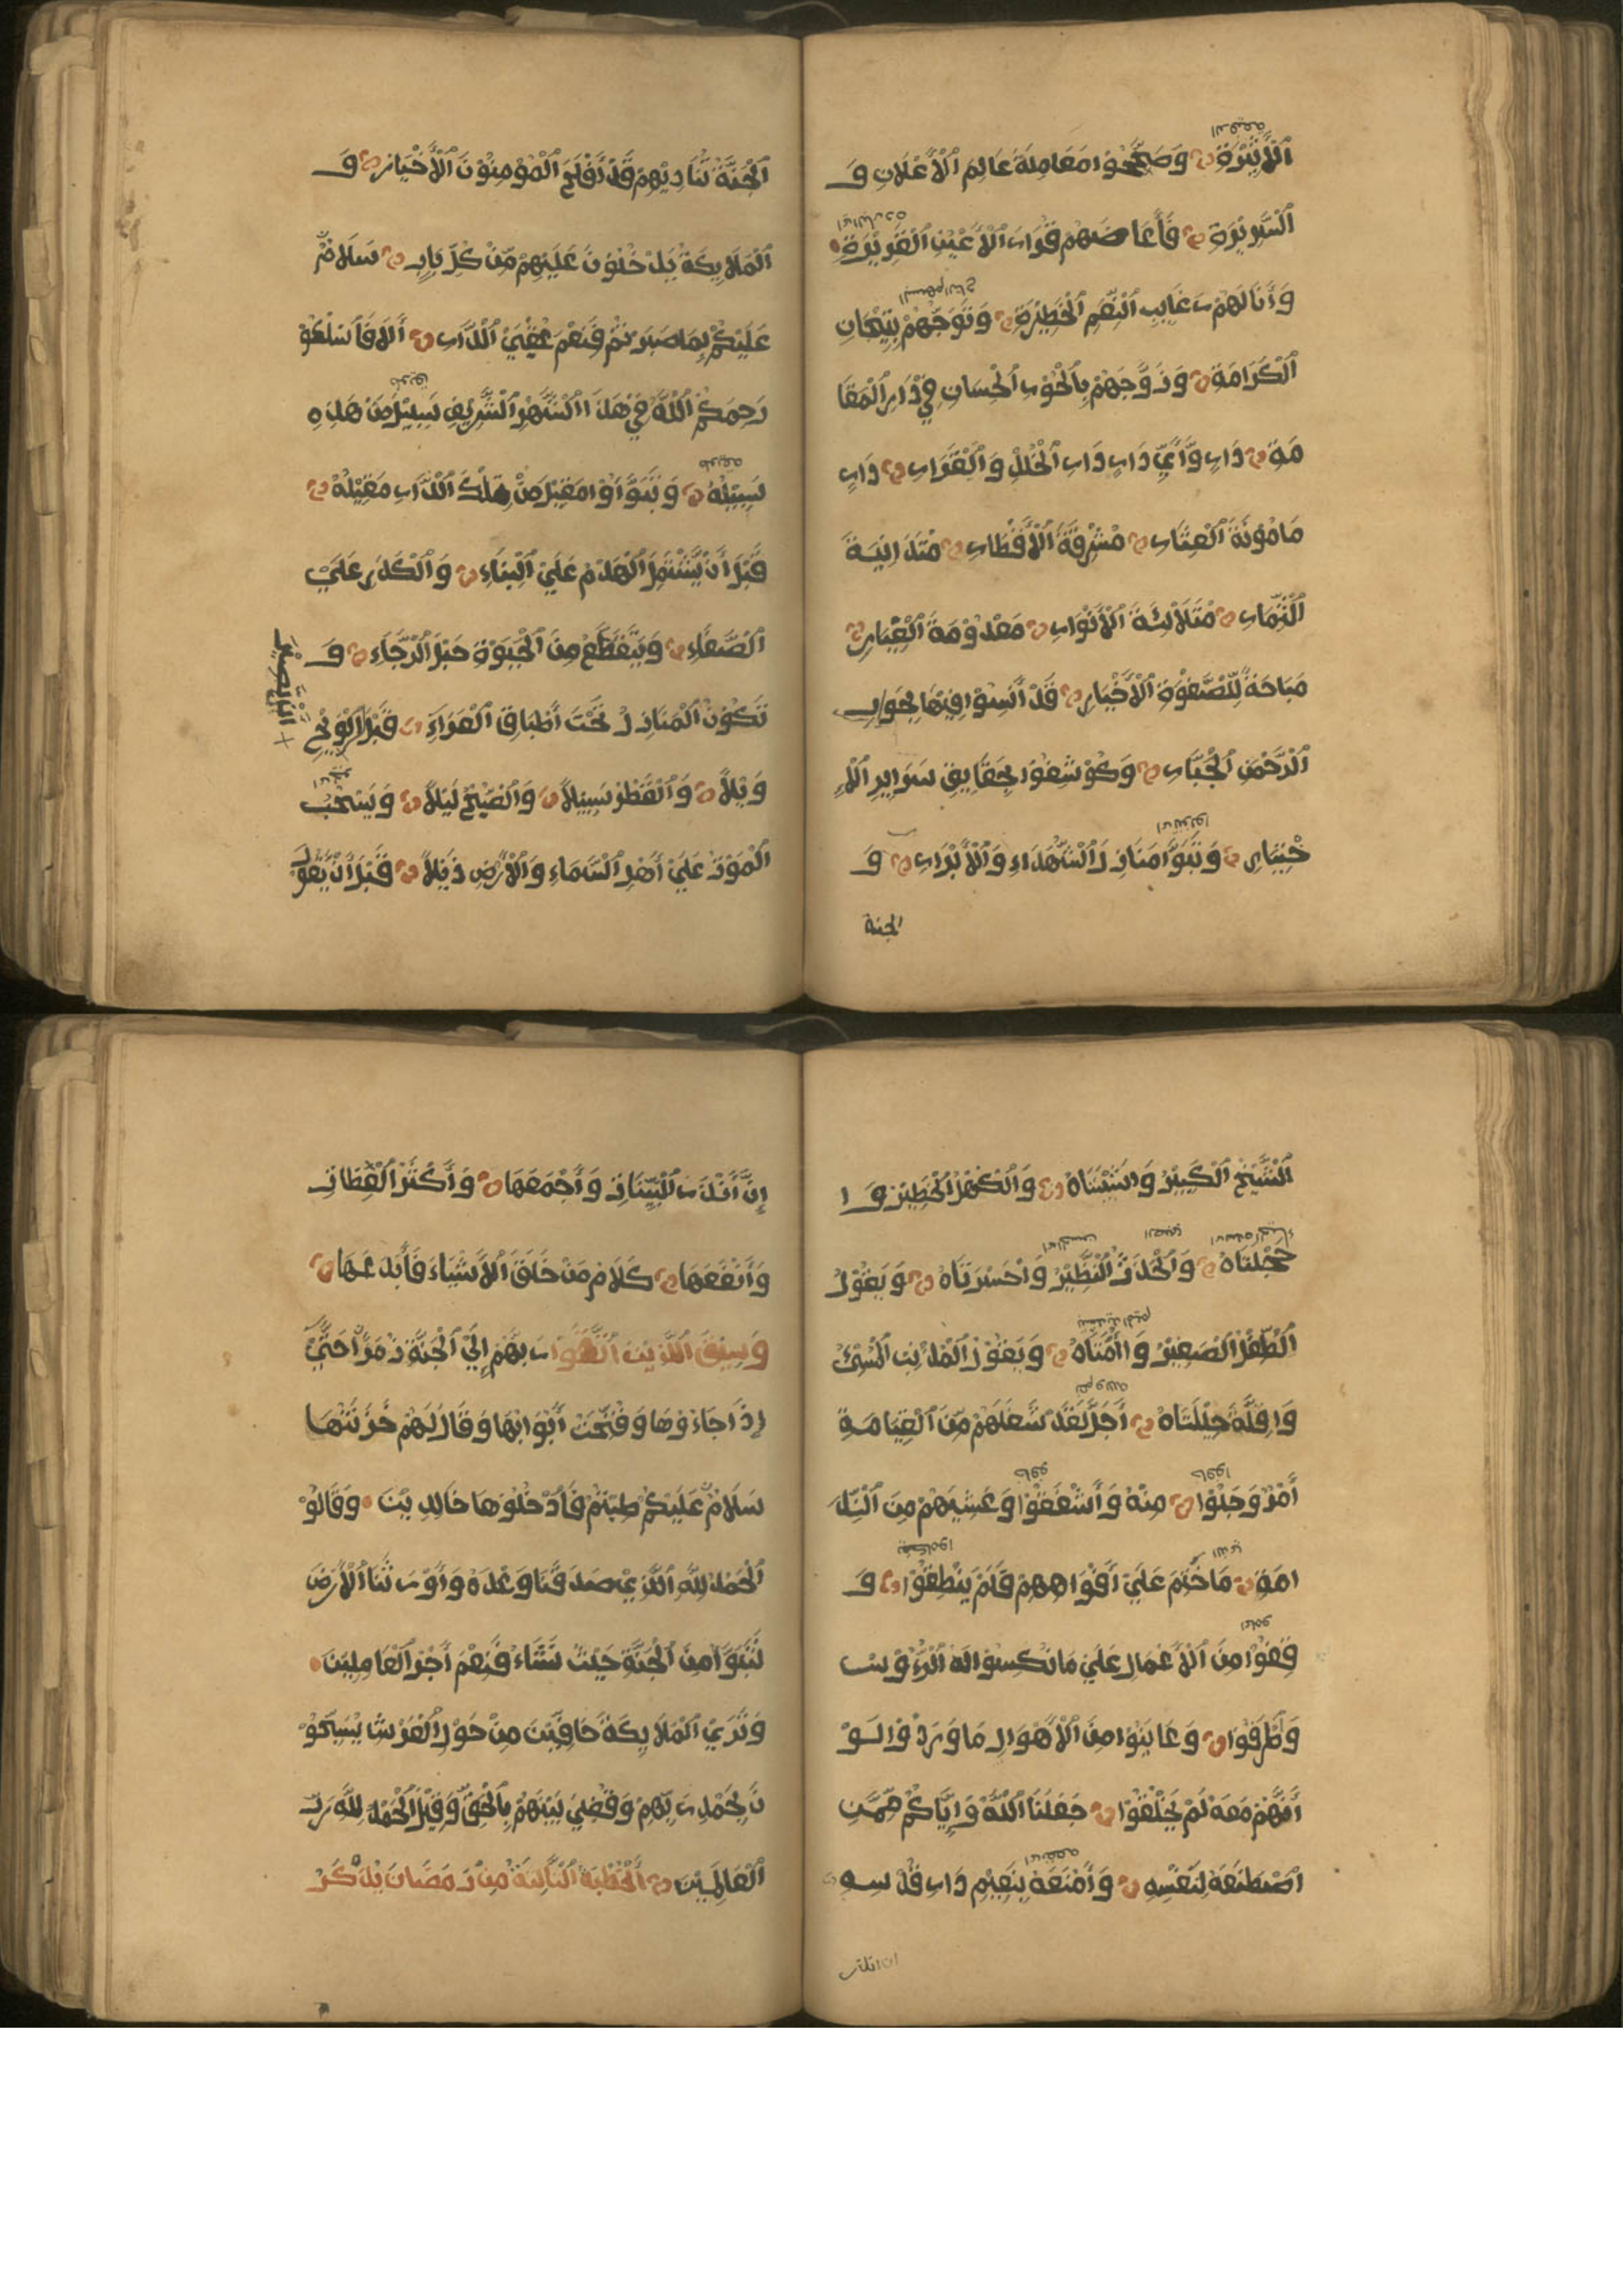 الدفيعة
ٱلْأَثِيْرَةِ وَصَحَّحُوْا مُعَامَلَةَ عَالِمِ ٱلْأَعْلَانِ وَ
اى الباردة
ٱلسَّرِيْرَةِ فَأَعَاضَهُمْ قَرَارَ ٱلْأَعْيُنِ ٱلْقَرِيْرَةِ
البسهم التاج
وَأَنَالَهُمْ رَغَايِبَ ٱلنِّعَمِ ٱلْخَطِيْرَةِ وَتَوَّجَهُمْ بِتِيْجَانِ
ٱلْكَرَامَةِ وَزَوَّجَهُمْ بِٱلْحُوْرِ ٱلْحِسَانِ فِيْ دَارِ ٱلْمُقَا
مَةِ دَارٍ وَّأَيِّ دَارٍ دَارِ ٱلْخُلْدِ وَٱلْقَرَارِ دَارٍ
مَامُوْنَةَ ٱلْعِثَارِ مُشْرِقَةَ ٱلْأَقْطَارِ مُتَدَانِيَةَ
ٱلثِّمَارِ مُتَلَالِئَةَ ٱلْأَنْوَارِ مَعْدُوْمَةَ ٱلْغُبَارِ
مُبَاحَةً لِّلصَّفْوَةِ ٱلْأَخْيَارِ قَدْ أَنِسُوْا فِيْهَا بِجِوَارِ
ٱلرَّحْمٰنِ ٱلْجَبَّارِ وَكُوْشِفُوْا بِحَقَايِقِ سَرَايِرِ ٱلْاِ
اى نزلوا
خْتِيَارِ وَتَبَوَّا مَنَازِلَ ٱلشُّهَدَاءِ وَٱلْأَبْرَارِ وَ
الجنة
ٱلْجَنَّةُ تُنَادِيْهِمْ قَدْ أَفْلَحَ ٱلْمُوْمِنُوْنَ ٱلْأَخْيَارُ وَ
ٱلْمَلَايِكَةُ يَدْخُلُوْنَ عَلَيْهِمْ مِّنْ كُلِّ بَابٍ سَلَامٌ
عَلَيْكُمْ بِمَا صَبَرْتُمْ فَنِعْمَ عُقْبَيْ ٱلدَّارِ أَلَا فَٱسْلُكُوْ
طريق
رَحِمَكُمُ ٱللّٰهُ فِيْ هٰذَا ٱلشَّهْرِ ٱلشَّرِيْفِ سَبِيْلَ مَنْ هٰذِهِ
طريقه
سَبِيْلُهُ وَتَبَوَّاؤْا مَقِيْلَ مَنْ تِلْكَ ٱلدَّارِ مَقِيْلُهُ
قَبْلَ أَنْ يَّشْتَمِلَ ٱلْهَدْمُ عَلَيْ ٱلْبِنَاءِ وَٱلْكَدَرُ عَلَيْ
ٱلصَّفَاءِ وَيَتَقَطَّعَ مِنَ ٱلْحَيٰوةِ حَبْلُ ٱلرَّجَاءِ وَ
تَكُوْنَ ٱلْمَنَازِلُ تَحْتَ أَطْبَاقِ ٱلْعَرَاءِ قَبْلَ ٱلرُّوْيَحِ
وَبْلًا وَٱلْقَطْرُ سَيْلًا وَٱلصُّبْحُ لَيْلًا وَيَسْحَبُ
ٱلْمَوْتُ عَلَيْ أَهْلِ ٱلسَّمَاءِ وَٱلْأَرْضِ ذَيْلًا قَبْلَ أَنْ يَّقُوْلَ
ٱلشَّيْخُ ٱلْكَبِيْرُ وَاشَيْبَتَاهُ وَٱلْكَهْلُ ٱلْخَطِيْرُ وَا
خَجْلَتَاهُ وَٱلْحَدَثُ ٱلنَّظِيْرُ وَاحَسْرَتَاهُ وَيَقُوْلُ
ٱلطِّفْلُ ٱلصَّغِيْرُ وَاأُمَّتَاهُ وَيَقُوْلُ ٱلْمُذْنِبُ ٱلْمُسِيْءُ
وَاقِلَّةَ حِيْلَتَاهُ أَجَلْ لَقَدْ شَغَلَهُمْ مِّنَ ٱلْقِيَامَةِ
خافوا خافو
أَمْرٌ وَجِلُوْا مِنْهُ وَأَشْفَقُوْا وَغَشِيَهُمْ مِنَ ٱلنَّدَ
الذي
امَةِ مَا خُتِمَ عَلَيْ أَفْوَاهِهِمْ فَلَمْ يَنْطِقُوْا وَ
وُقِفُوْا مِنَ ٱلْأَعْمَالِ عَلَيْ مَا نُكِسُوْا لَهُ ٱلرُّؤُوْسَ
وَطْرَقُوْا وَعَايَنُوْا مِنَ ٱلْأَهْوَالِ مَا وُدُّوْا لَوْ
أَنَّهُمْ مَعَهُ لَمْ يُخْلَقُوْا جَعَلَنَا ٱللّٰهُ وَإِيَّاكُمْ مِمَّنِ
اى نفعه
ٱصْطَنَعَهُ لِنَفْسِهِ وَأَمْتَعَهُ بِنَعِيْمِ دَارِ قُدْسِهِ
ان انذر
إِنَّ أَنْذَرَ ٱلْبَيِّنَاتِ وَأَجْمَعَهَا وَأَكْثَرَ ٱلْعِظَاتِ
وَأَنْفَعَهَا كَلَامُ مَنْ خَلَقَ ٱلْأَشْيَاءَ فَأَبْدَعَهَا
وَسِيْقَ ٱلَّذِيْنَ ٱتَّقَوْا رَبَّهُمْ إِلَيْ ٱلْجَنَّةِ زُمَرًا حَتَّيْ
إِذَا جَاءُوْهَا وَفُتِحَتْ أَبْوَابُهَا وَقَالَ لَهُمْ خَزَنَتُهَا
سَلَامٌ عَلَيْكُمْ طِبْتُمْ فَٱدْخُلُوْهَا خَالِدِيْنَ وَقَالُوْ
ٱلْحَمْدُ لِلّٰهِ ٱلَّذِيْ صَدَقَنَا وَعْدَهُ وَأَوْرَثَنَا ٱلْأَرْضَ
نَتَبَوَّأُ مِنَ ٱلْجَنَّةِ حَيْثُ نَشَاءُ فَنِعْمَ أَجْرُ ٱلْعَامِلِيْنَ
وَتَرَيْ ٱلْمَلَايِكَةَ حَافِّيْنَ مِنْ حَوْلِ ٱلْعَرْشِ يُسَبِّحُوْ
نَ بِحَمْدِ رَبِّهِمْ وَقُضِيَ بَيْنَهُمْ بِٱلْحَقِّ وَقِيْلَ ٱلْحَمْدُ لِلّٰهِ رَبِّ
ٱلْعَالَمِيْنَ ٱلْخُطْبَةُ ٱلثَّالِثَةُ مِنْ رَمَضَانَ يُذْكَرُ